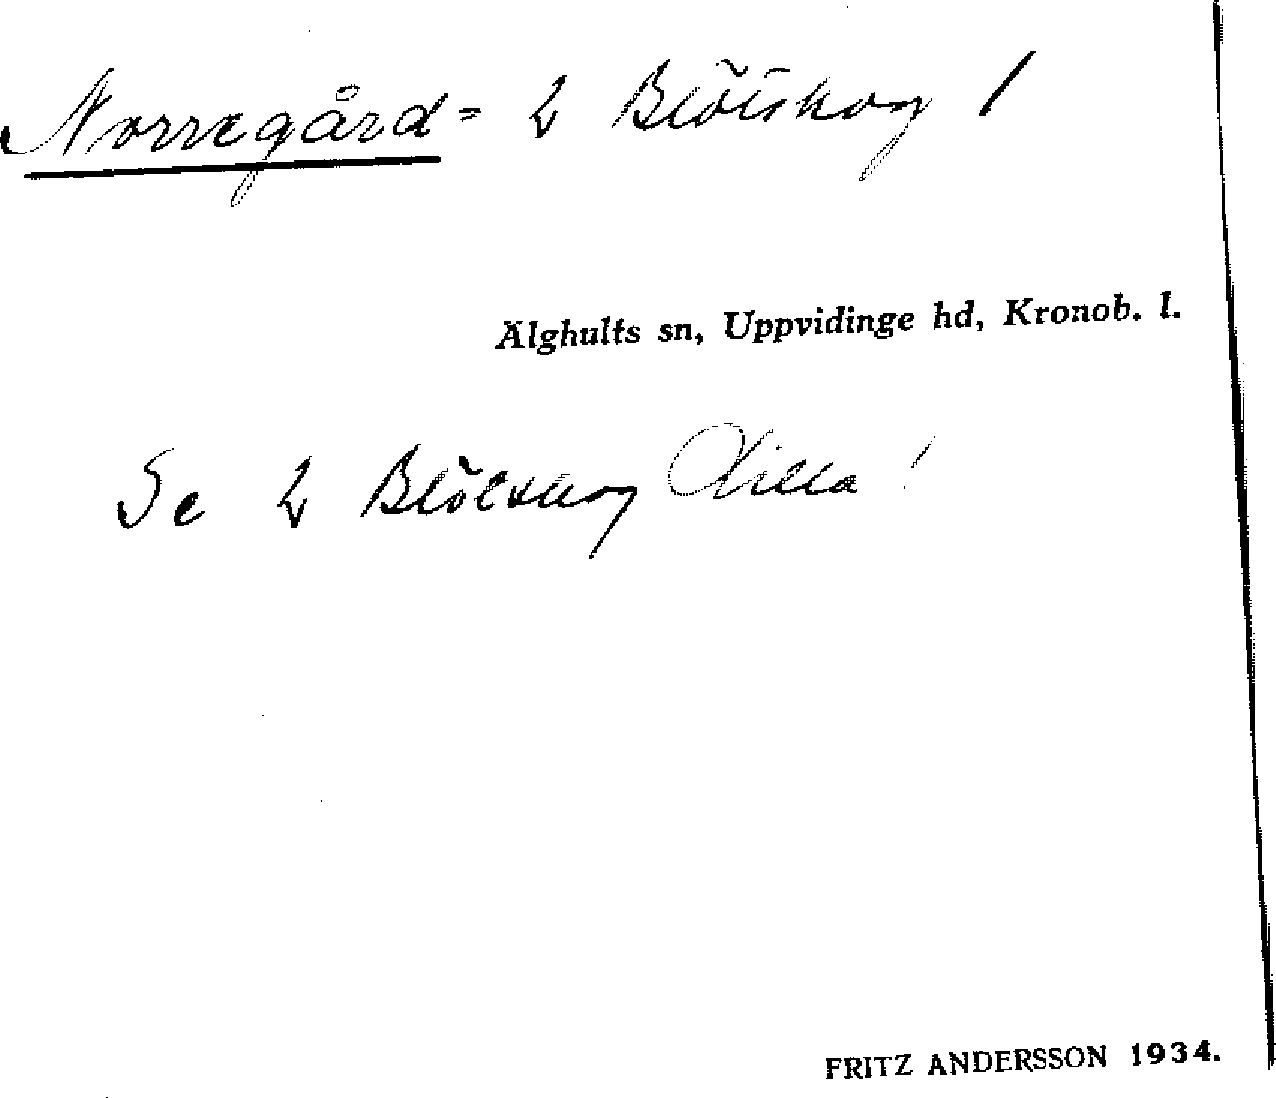 Norregård = L Blötskog /
Älghults sn, Uppvidinge hd, Kronob. l.
Se L Blötskog Lilla !
FRITZ ANDERSSON 1934.